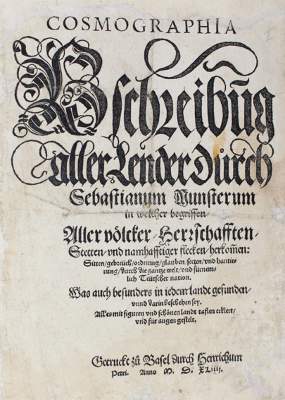 COSMOGRAPHIA
Bschreibūg
aller Lender Důrch
Sebastianum Munsterum
in welcher begriffen/
Aller völcker/ Herrschafften/
Stetten/ vnd namhafftiger flecken/ herkomen:
Sitten/ gebreüch/ ordnung/ glauben/ secten/ vnd hantie-
rung/ durch die gantze welt/ vnd fürnem-
lich Teütscher nation.
Was auch besunders in iedem landt gefunden/
vnnd darin beschehen sey.
Alles mit figuren vnd schönen landt taflen erklert/
vnd für augen gestelt.
Getruckt zů Basel durch Henrichum
Petri. Anno M. D. XLIIII.